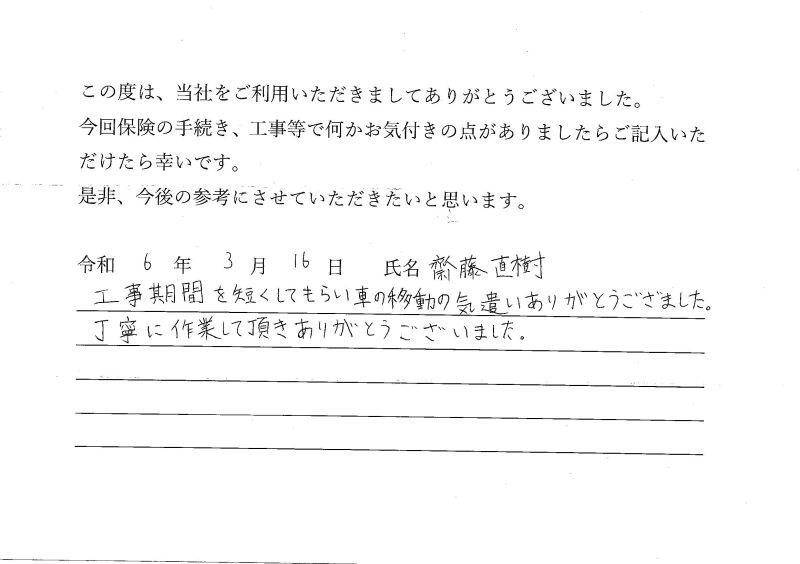 この度は、当社をご利用いただきましてありがとうございました。
今回保険の手続き、工事等で何かお気付きの点がありましたらご記入いた
だけたら幸いです。
是非、今後の参考にさせていただきたいと思います。
令和 6 年 3 月 16 日 氏名 齋藤 直樹
工事期間を短くしてもらい車の移動の気遣いありがとうござました。
丁寧に作業して頂きありがとうございました。